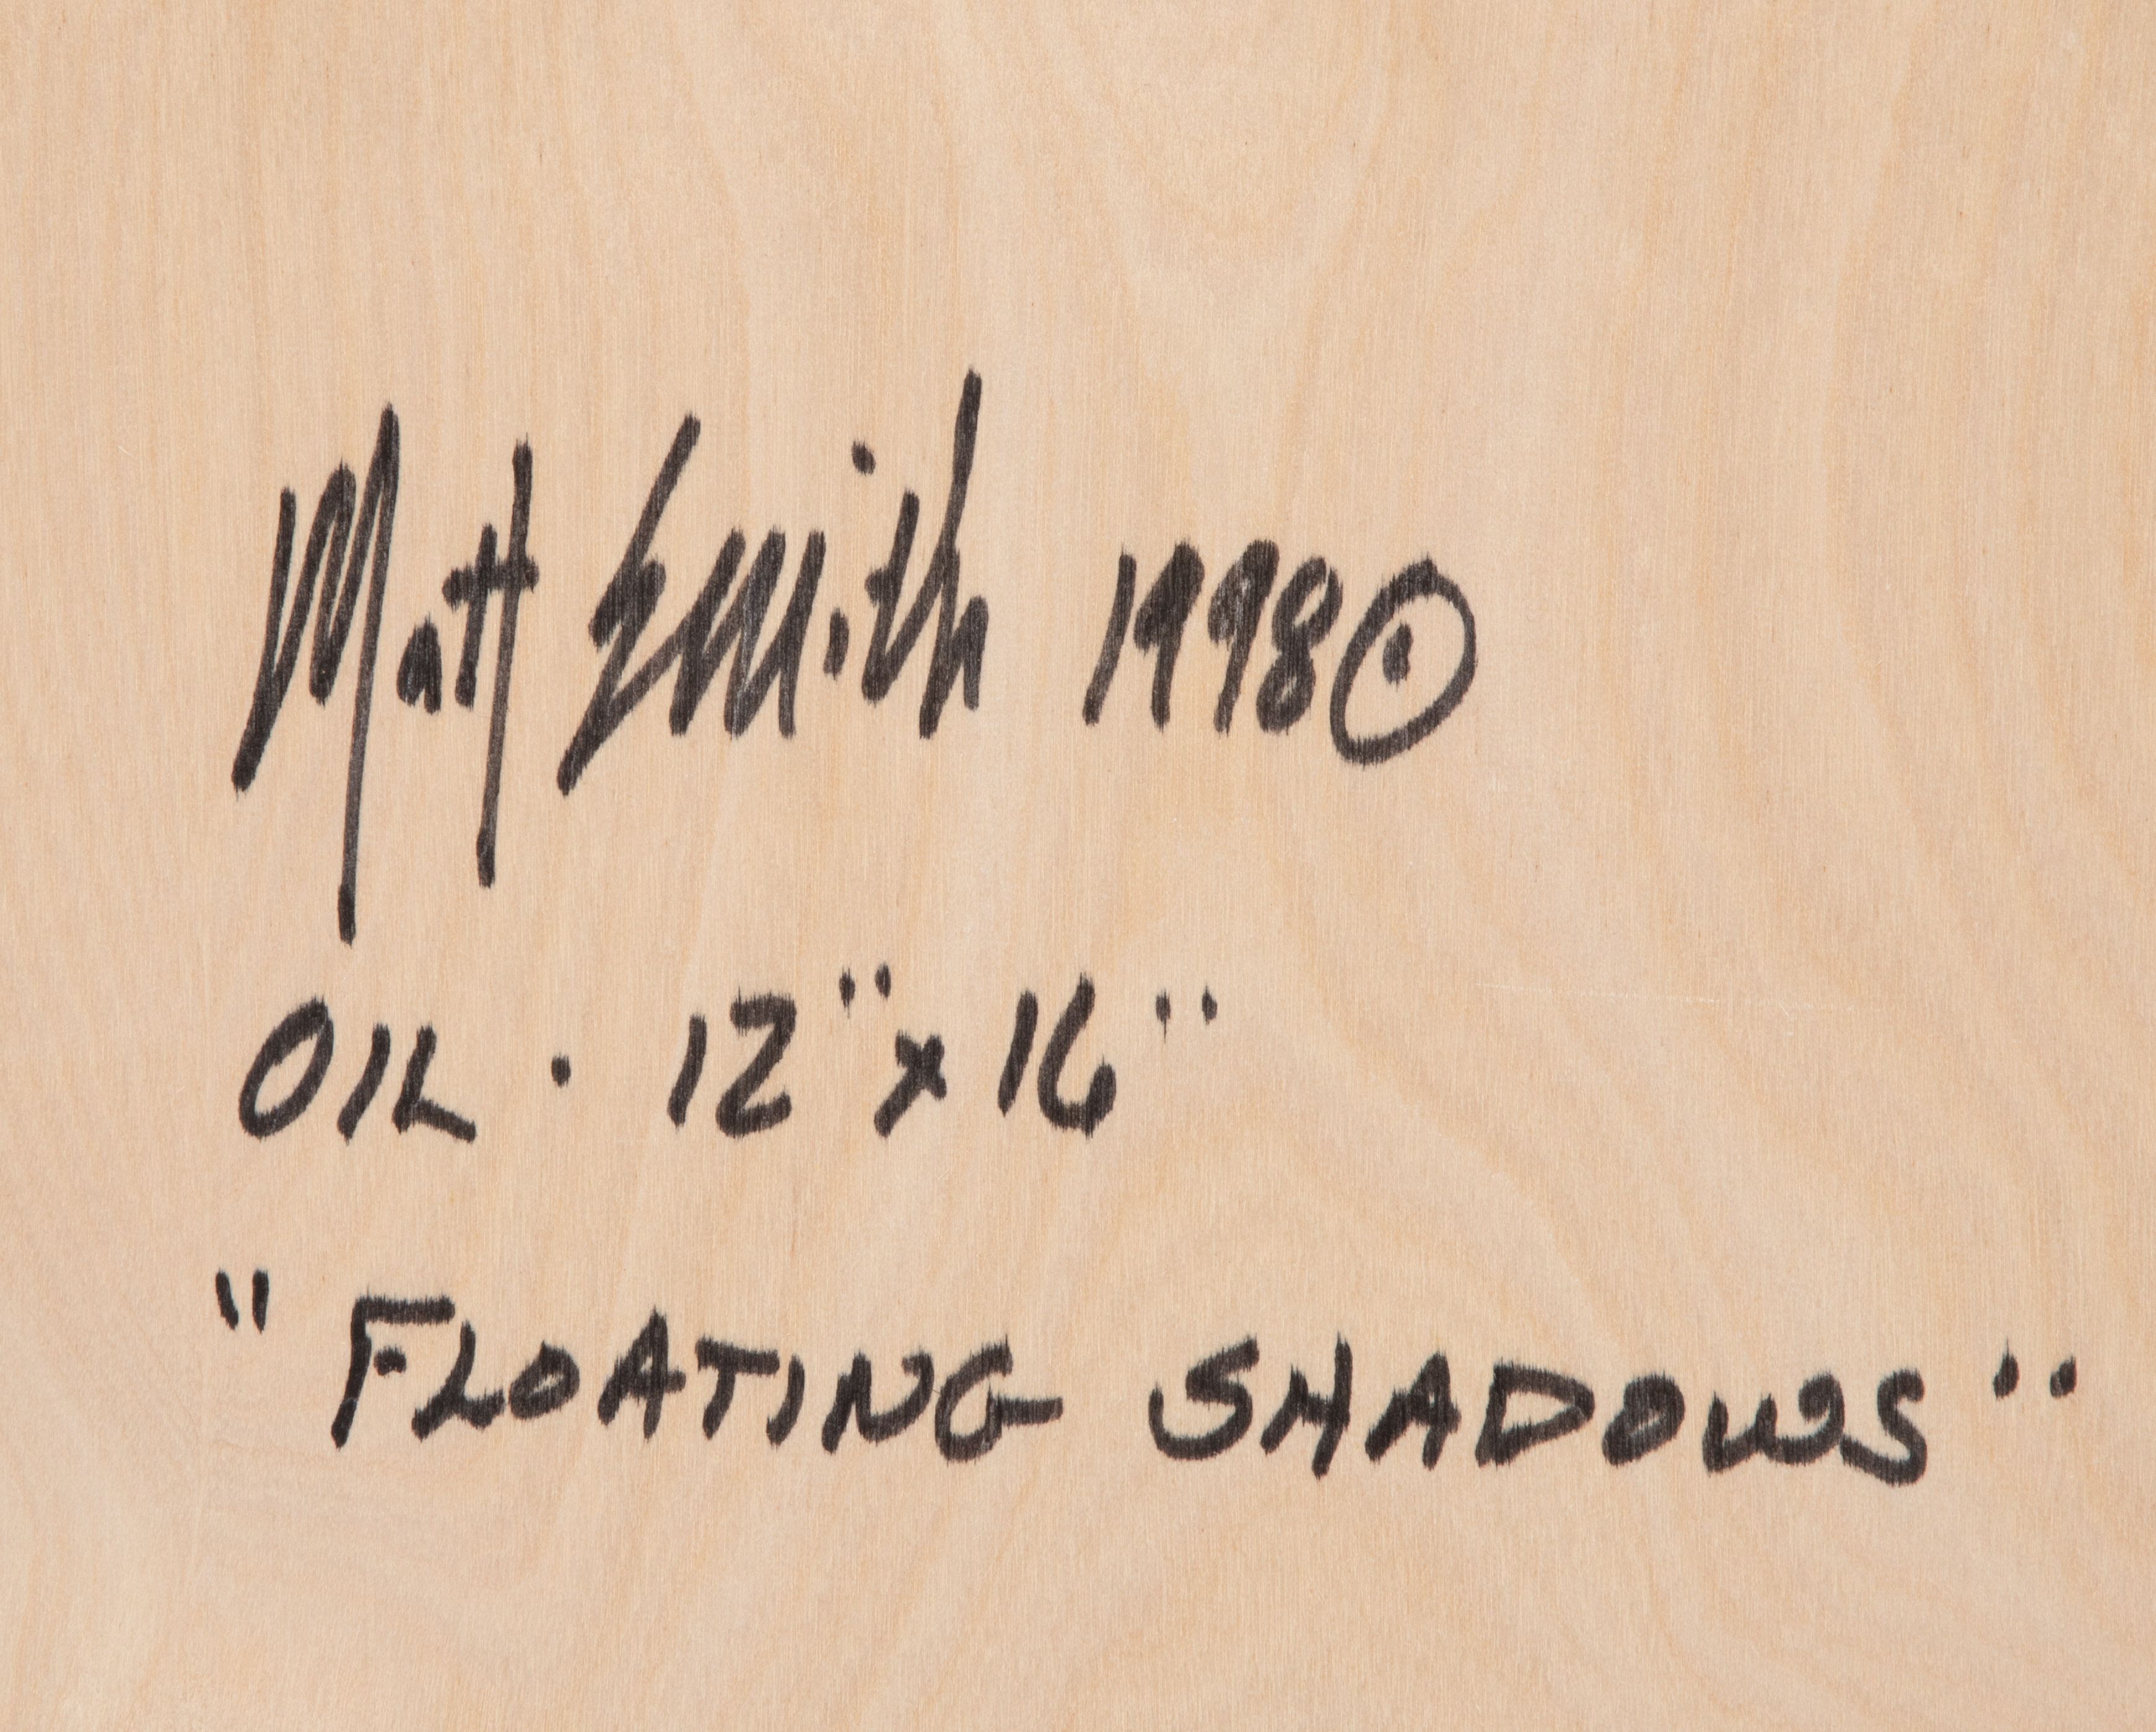 Matt Smith 1998 ⊙
OIL · 12" x 16"
"FLOATING SHADOWS"